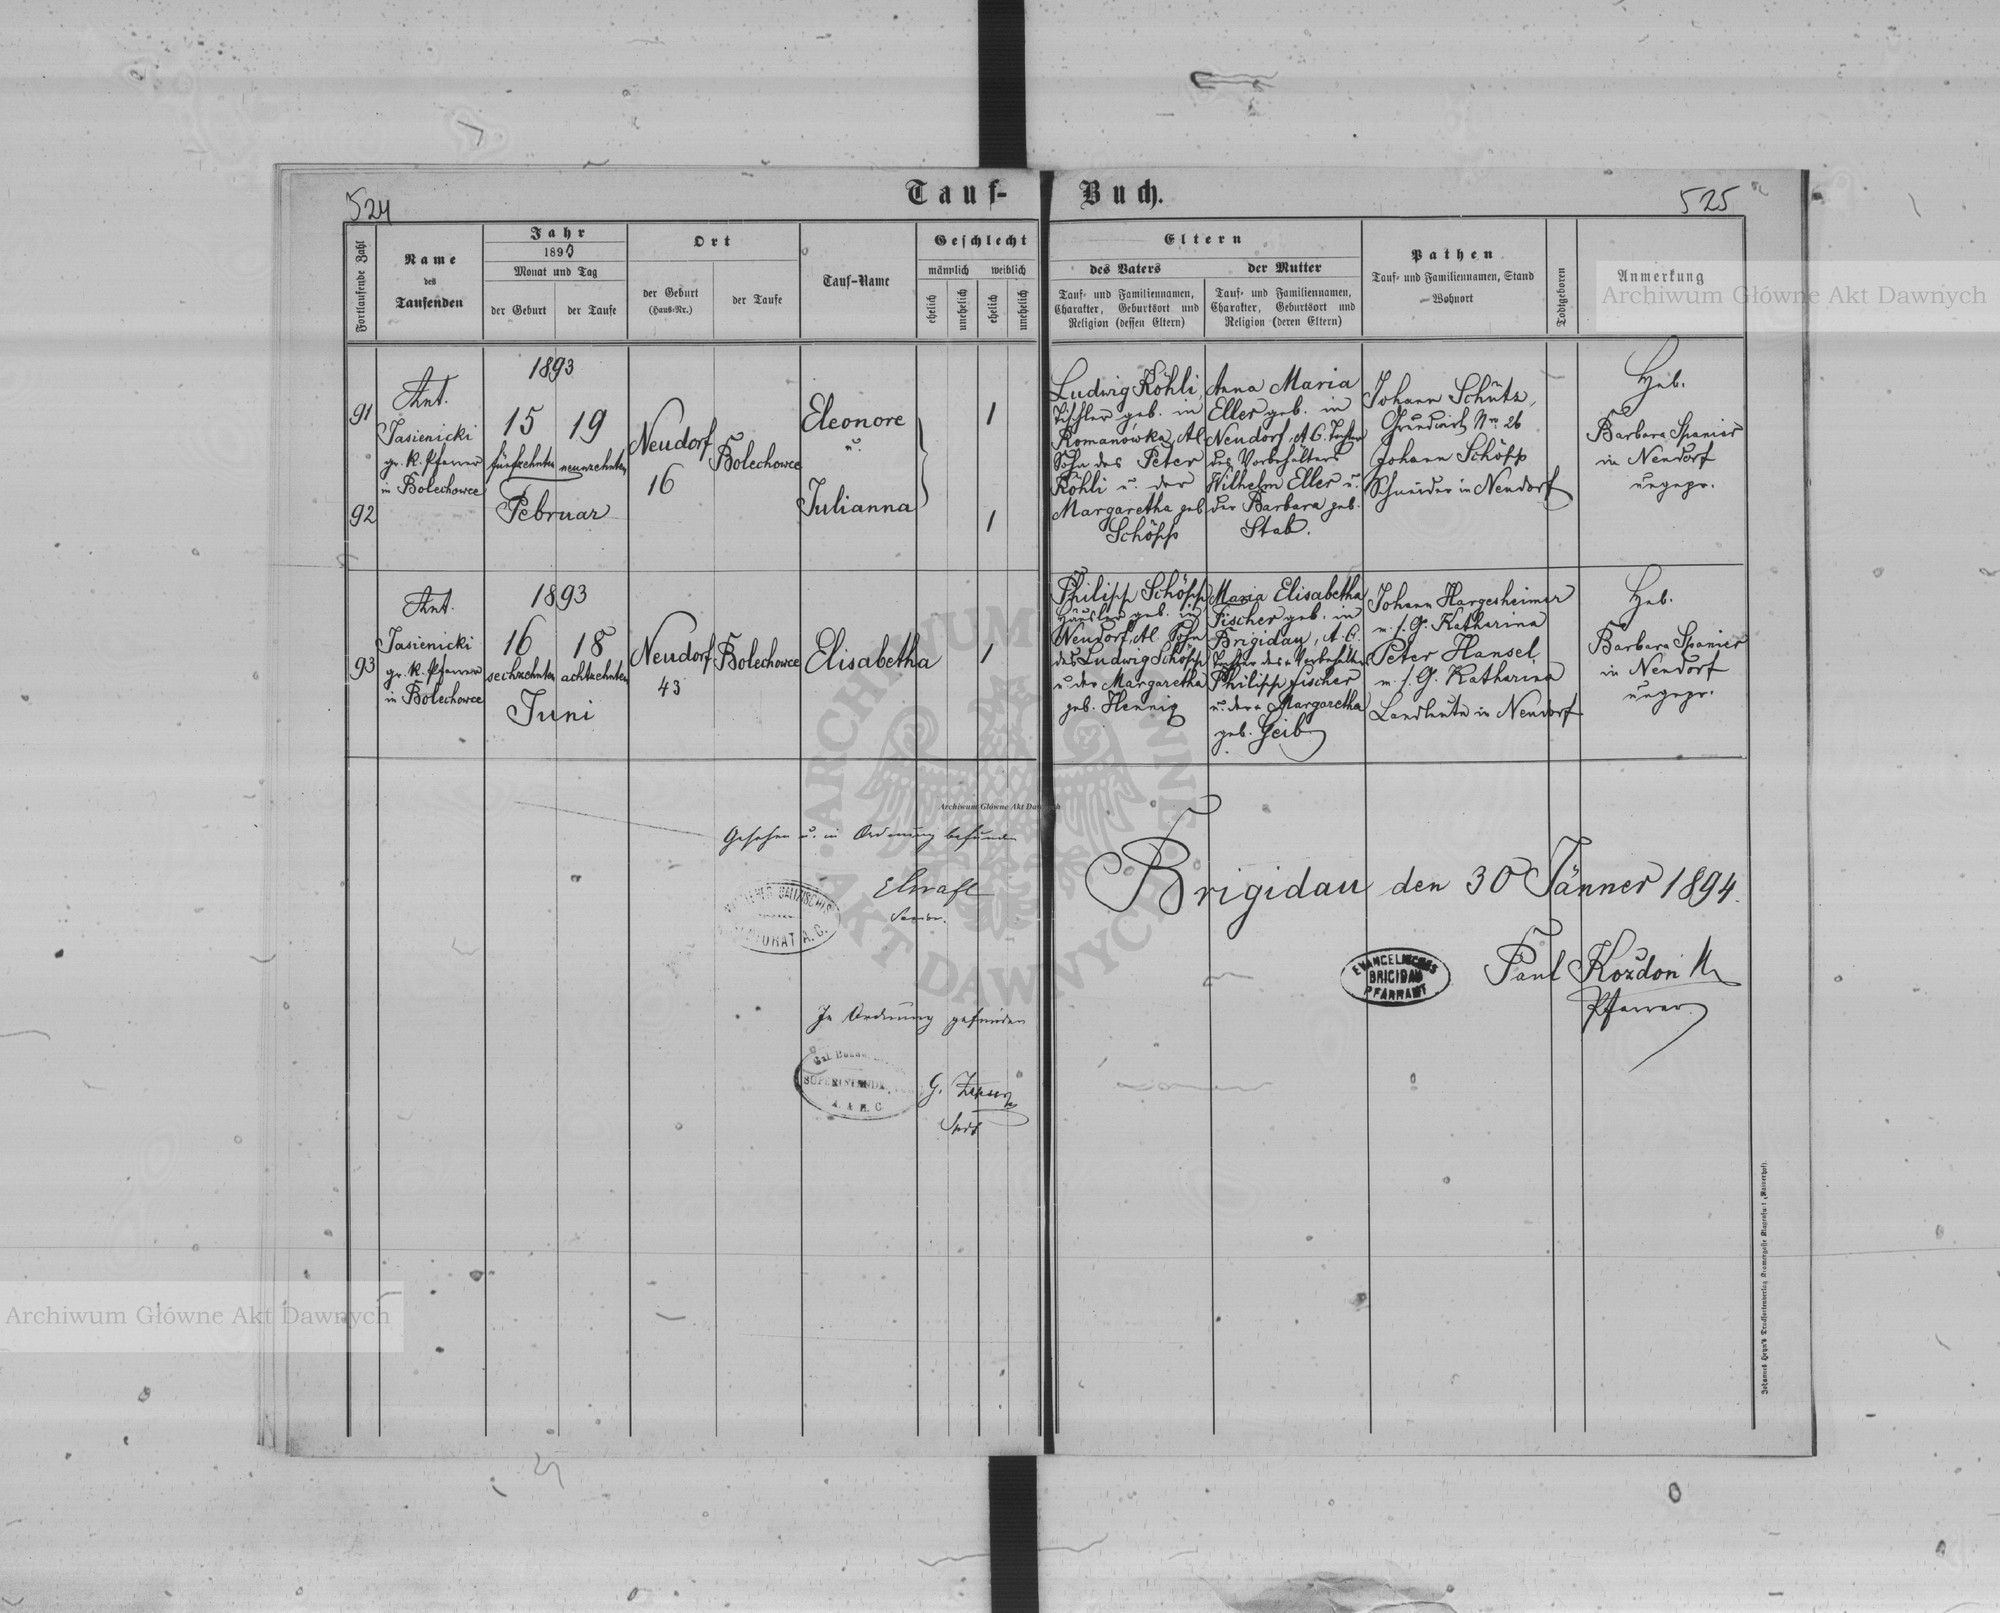 524
Tauf-Buch.
525
Fortlaufende Zahl
Name
des
Taufenden
Jahr
1893
Monat und Tag
der Geburt
der Taufe
Ort
der Geburt
(Haus-Nr.)
der Taufe
Tauf-Name
Geschlecht
männlich
weiblich
ehelich
unehelich
ehelich
unehelich
Eltern
des Vaters
Tauf- und Familiennamen,
Charakter, Geburtsort und
Religion (dessen Eltern)
der Mutter
Tauf- und Familiennamen,
Charakter, Geburtsort und
Religion (deren Eltern)
Pathen
Tauf- und Familiennamen, Stand
Wohnort
Todtgeboren
Anmerkung
91
92
Ant.
Jasienicki
gr. k. Pfarrer
in Bolechowce
1893
15
fünfzehnten
19
neunzehnten
Februar
Neudorf
16
Bolechowce
Eleonore
u.
Julianna
1
1
Ludwig Köhli,
Tischler geb. in
Romanówka, A.
Sohn des Peter
Köhli u. der
Margaretha geb
Schöpp
Anna Maria
Eller geb. in
Neudorf, A.C. Tochter
des Vorbehälters
Wilhelm Eller u.
der Barbara geb.
Stab.
Johann Schütz,
Grundwirt Nr. 26
Johann Schöpp
Schneider in Neudorf
Heb.
Barbara Spanier
in Neudorf
ungepr.
93
Ant.
Jasienicki
gr. k. Pfarrer
in Bolechowce
1893
16
sechzehnten
18
achtzehnten
Juni
Neudorf
43
Bolechowce
Elisabetha
1
Philipp Schöpp
Häusler geb. in
Neudorf, A. Sohn
des Ludwig Schöpp
u. der Margaretha
geb. Hennig
Maria Elisabetha
Fischer geb. in
Brigidau, A.C.
Tochter des + Vorbehälters
Philipp Fischer
u. der + Margaretha
geb. Geib
Johann Hargesheimer
u. s. G. Katharina
Peter Hansel
u. s. G. Katharina
Landleute in Neudorf
Heb.
Barbara Spanier
in Neudorf
ungepr.
Gesehen u. in Ordnung befunden
Senior.
Brigidau den 30 Jänner 1894.
EVANGELISCHES
BRIGIDAU
PFARRAMT
Paul Kozdon
Pfarrer
In Ordnung gefunden
G.
Archiwum Główne Akt Dawnych
Archiwum Główne Akt Dawnych
Archiwum Główne Akt Dawnych
ARCHIWUM GŁÓWNE AKT DAWNYCH